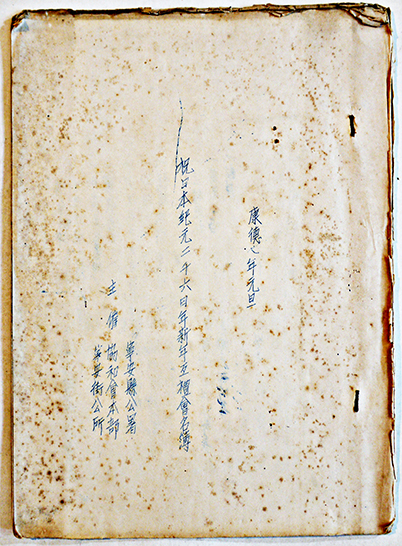 康德七年元旦
祝日本紀元二千六百年新年互禮會名簿
寧安縣公署
主催 協和會本部
寧安街公所